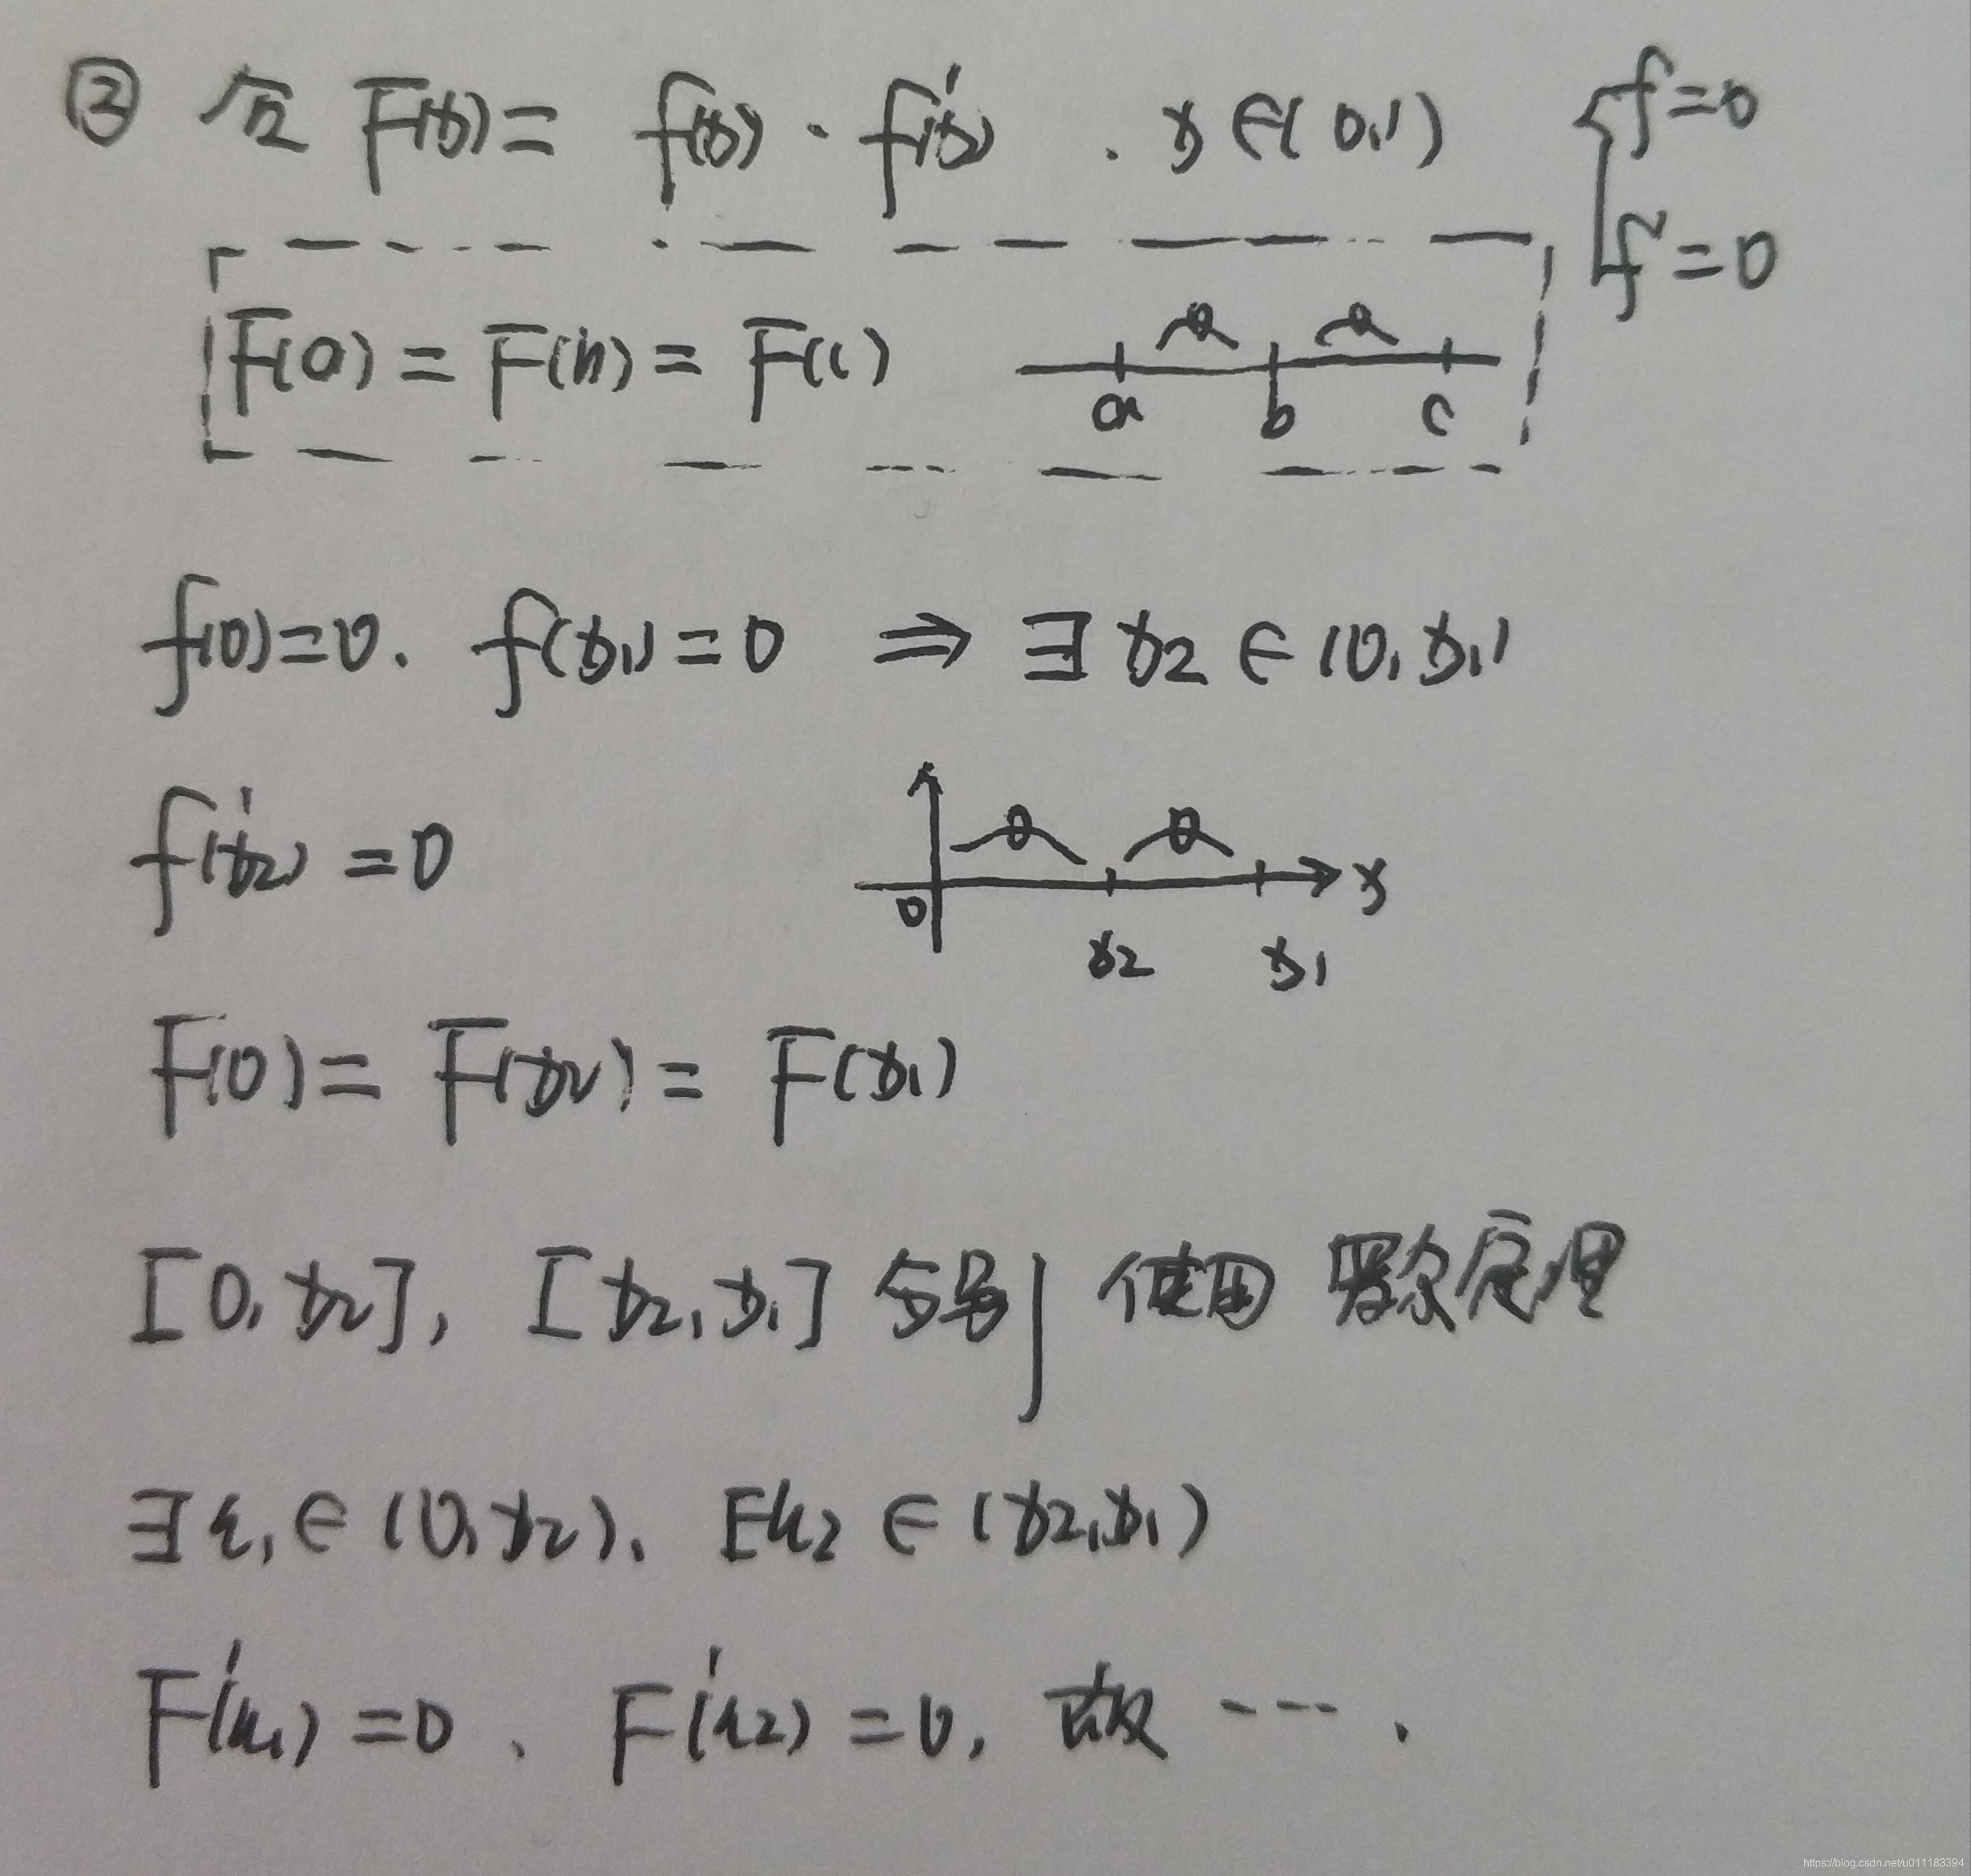 ② 令 F(x) = f(x) · f'(x) . x ∈ (0,1) { f=0
f'=0
F(a) = F(b) = F(c)
a b c
f(0)=0. f(x₁)=0 ⇒ ∃ x₂ ∈ (0, x₁)
f'(x₂) = 0
0 x₂ x₁ x
F(0) = F(x₂) = F(x₁)
[0, x₂], [x₂, x₁] 分别 使用 罗尔定理
∃ ξ₁ ∈ (0, x₂)、 ∃ξ₂ ∈ (x₂, x₁)
F'(ξ₁) = 0 、 F'(ξ₂) = 0, 故 ---.
https://blog.csdn.net/u011183394